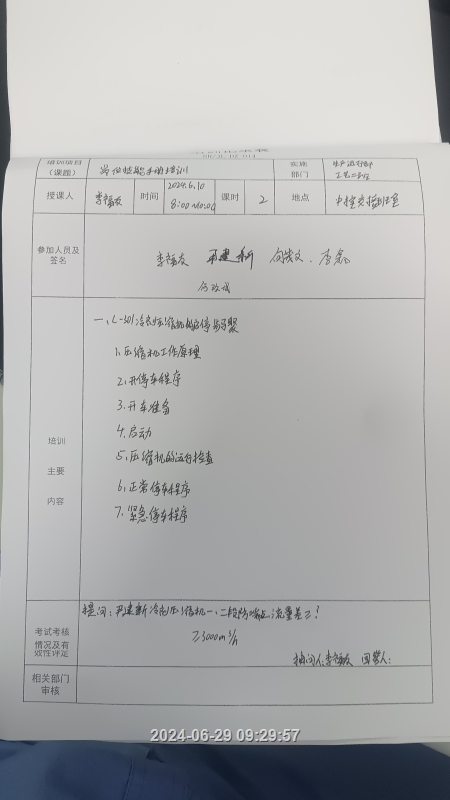 培训项目
(课题)
岗位技能手册培训
实施
部门
生产运行部
工艺二
授课人
李
时间
2024.6.10
8:00~10:00
课时
2
地点
中控交接班室
参加人员及
签名
李
建新
李鑫
一、L-501冷剂压缩机的启停步骤
1.压缩机工作原理
2.开停车程序
3.开车准备
4.启动
5.压缩机的运行检查
6.正常停车程序
7.紧急停车程序
培训
主要
内容
提问:尹建新 冷剂压缩机一、二段防喘点流量是?
≥3000m³/h
考试考核
情况及有
效性评定
提问人:李 回答人:
相关部门
审核
2024-06-29 09:29:57